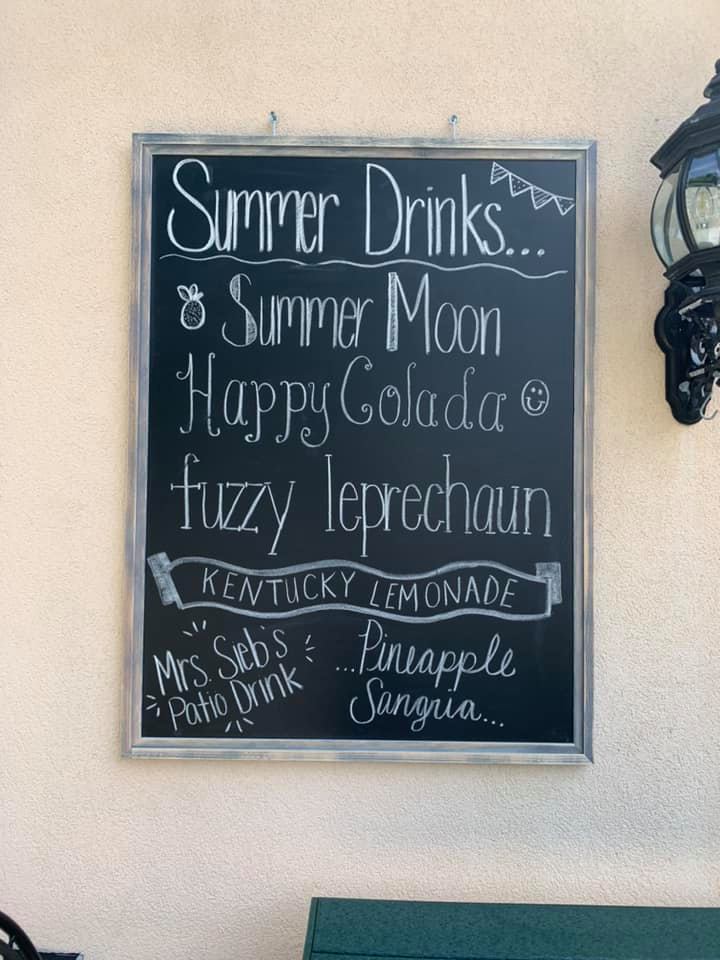 Summer Drinks...
Summer Moon
Happy Colada
fuzzy leprechaun
KENTUCKY LEMONADE
Mrs. Sieb's
Patio Drink
...Pineapple
Sangria...